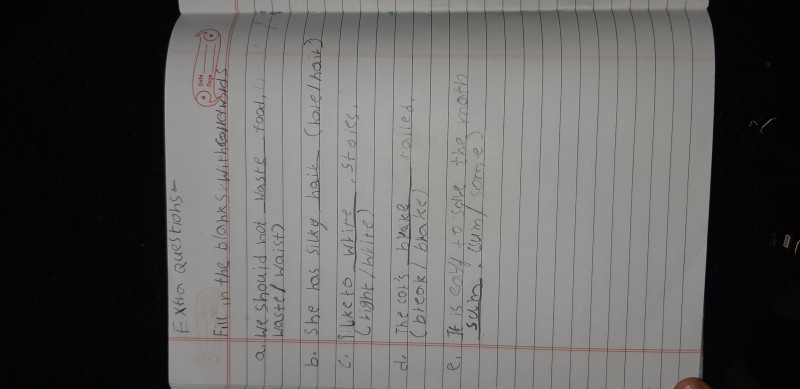 Date
Page
Extra questions-
Fill in the blanks. With correct words
a. We should not waste food.
waste/waist)
b. She has silky hair (hare/hair)
c. I like to write stories.
(right/write)
d. The car's brake failed.
(break/brake)
e. It is easy to solve the math
sum. (sum/some)